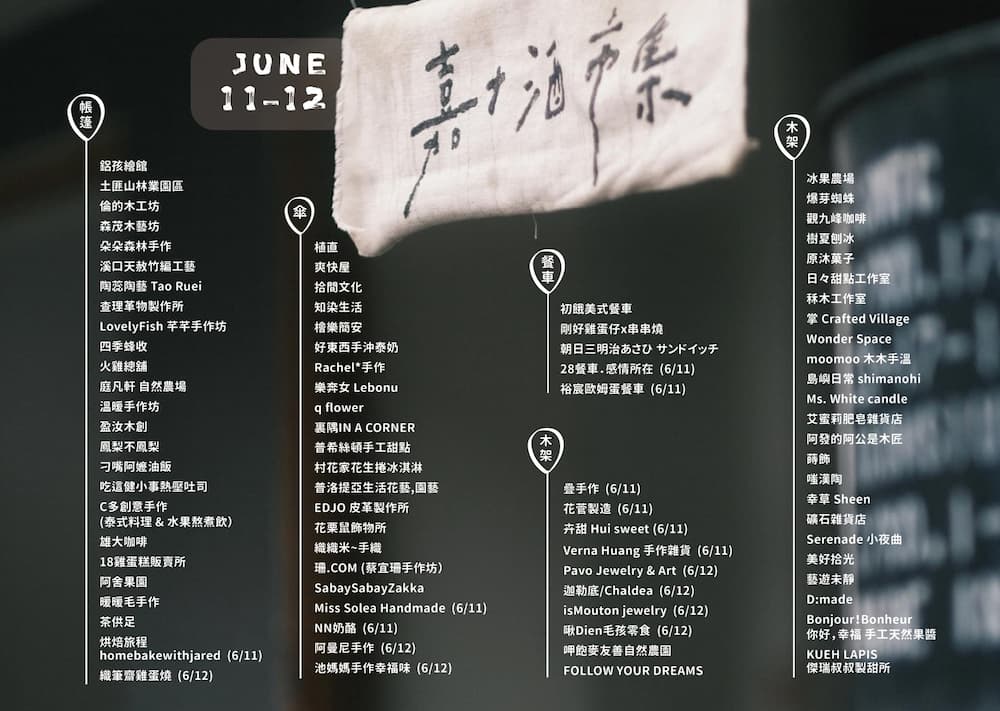 JUNE
11-12
嘉大酒市集
帳篷
鋁孩繪館
土匪山林業園區
倫的木工坊
森茂木藝坊
朵朵森林手作
溪口天赦竹編工藝
陶蕊陶藝 Tao Ruei
查理革物製作所
LovelyFish 芊芊手作坊
四季蜂收
火雞總舖
庭凡軒 自然農場
溫暖手作坊
盈汝木創
鳳梨不鳳梨
刁嘴阿嬤油飯
吃這健小事熱壓吐司
C多創意手作
(泰式料理 & 水果熬煮飲)
雄大咖啡
18雞蛋糕販賣所
阿舍果園
暖暖毛手作
茶供足
烘焙旅程
homebakewithjared (6/11)
織筆齋雞蛋燒 (6/12)
傘
植直
爽快屋
拾間文化
知染生活
檜樂簡安
好東西手沖泰奶
Rachel*手作
樂奔女 Lebonu
q flower
裏隅IN A CORNER
普希絲頓手工甜點
村花家花生捲冰淇淋
普洛提亞生活花藝,園藝
EDJO 皮革製作所
花栗鼠飾物所
織織米~手織
珊.COM (蔡宜珊手作坊)
SabaySabayZakka
Miss Solea Handmade (6/11)
NN奶酪 (6/11)
阿曼尼手作 (6/12)
池媽媽手作幸福味 (6/12)
餐車
初餓美式餐車
剛好雞蛋仔x串串燒
朝日三明治あさひ サンドイッチ
28餐車.感情所在 (6/11)
裕宸歐姆蛋餐車 (6/11)
木架
疊手作 (6/11)
花菅製造 (6/11)
卉甜 Hui sweet(6/11)
Verna Huang 手作雜貨 (6/11)
Pavo Jewelry & Art (6/12)
迦勒底/Chaldea (6/12)
isMouton jewelry (6/12)
啾Dien毛孩零食 (6/12)
呷飽麥友善自然農園
FOLLOW YOUR DREAMS
木架
冰果農場
爆芽蜘蛛
觀九峰咖啡
樹夏刨冰
原沐菓子
日々甜點工作室
秝木工作室
掌 Crafted Village
Wonder Space
moomoo 木木手溫
島嶼日常 shimanohi
Ms. White candle
艾蜜莉肥皂雜貨店
阿發的阿公是木匠
蒔飾
嗤漢陶
幸草 Sheen
礦石雜貨店
Serenade 小夜曲
美好拾光
藝遊未靜
D:made
Bonjour!Bonheur
你好,幸福 手工天然果醬
KUEH LAPIS
傑瑞叔叔製甜所